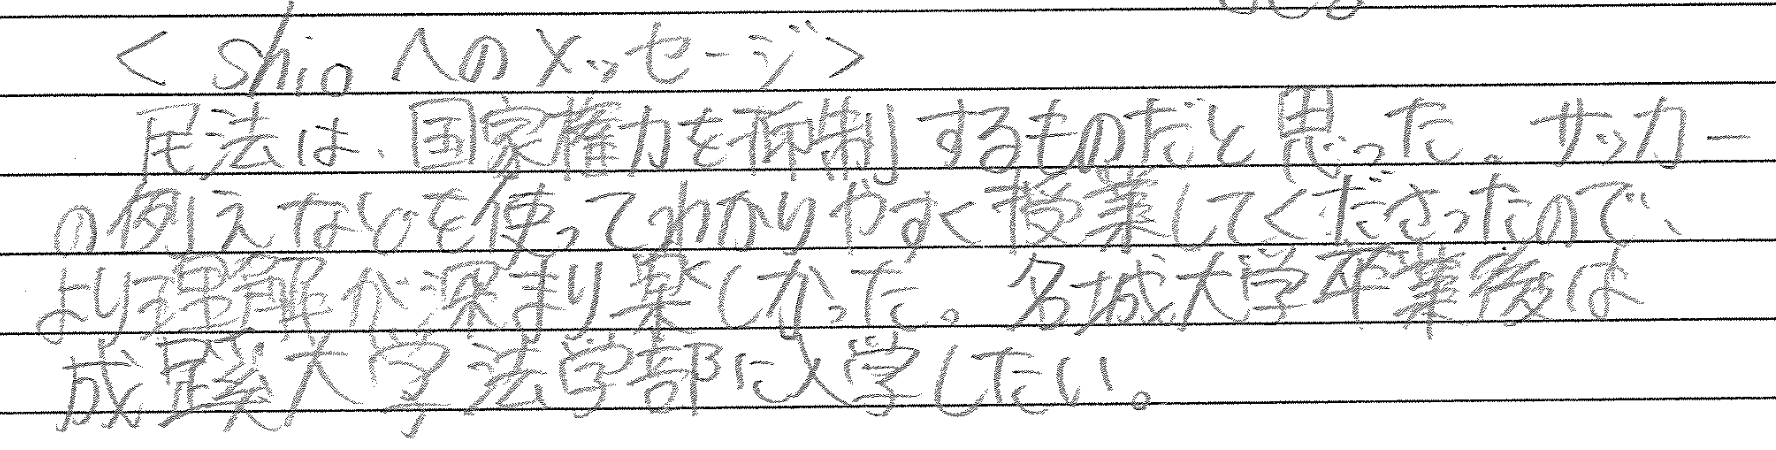 < shio へのメッセージ>
民法は、国家権力を抑制するものだと思った。サッカー
の例えなどを使ってわかりやすく授業してくださったので、
より理解が深まり楽しかった。名城大学卒業後は
成蹊大学法学部に入学したい。